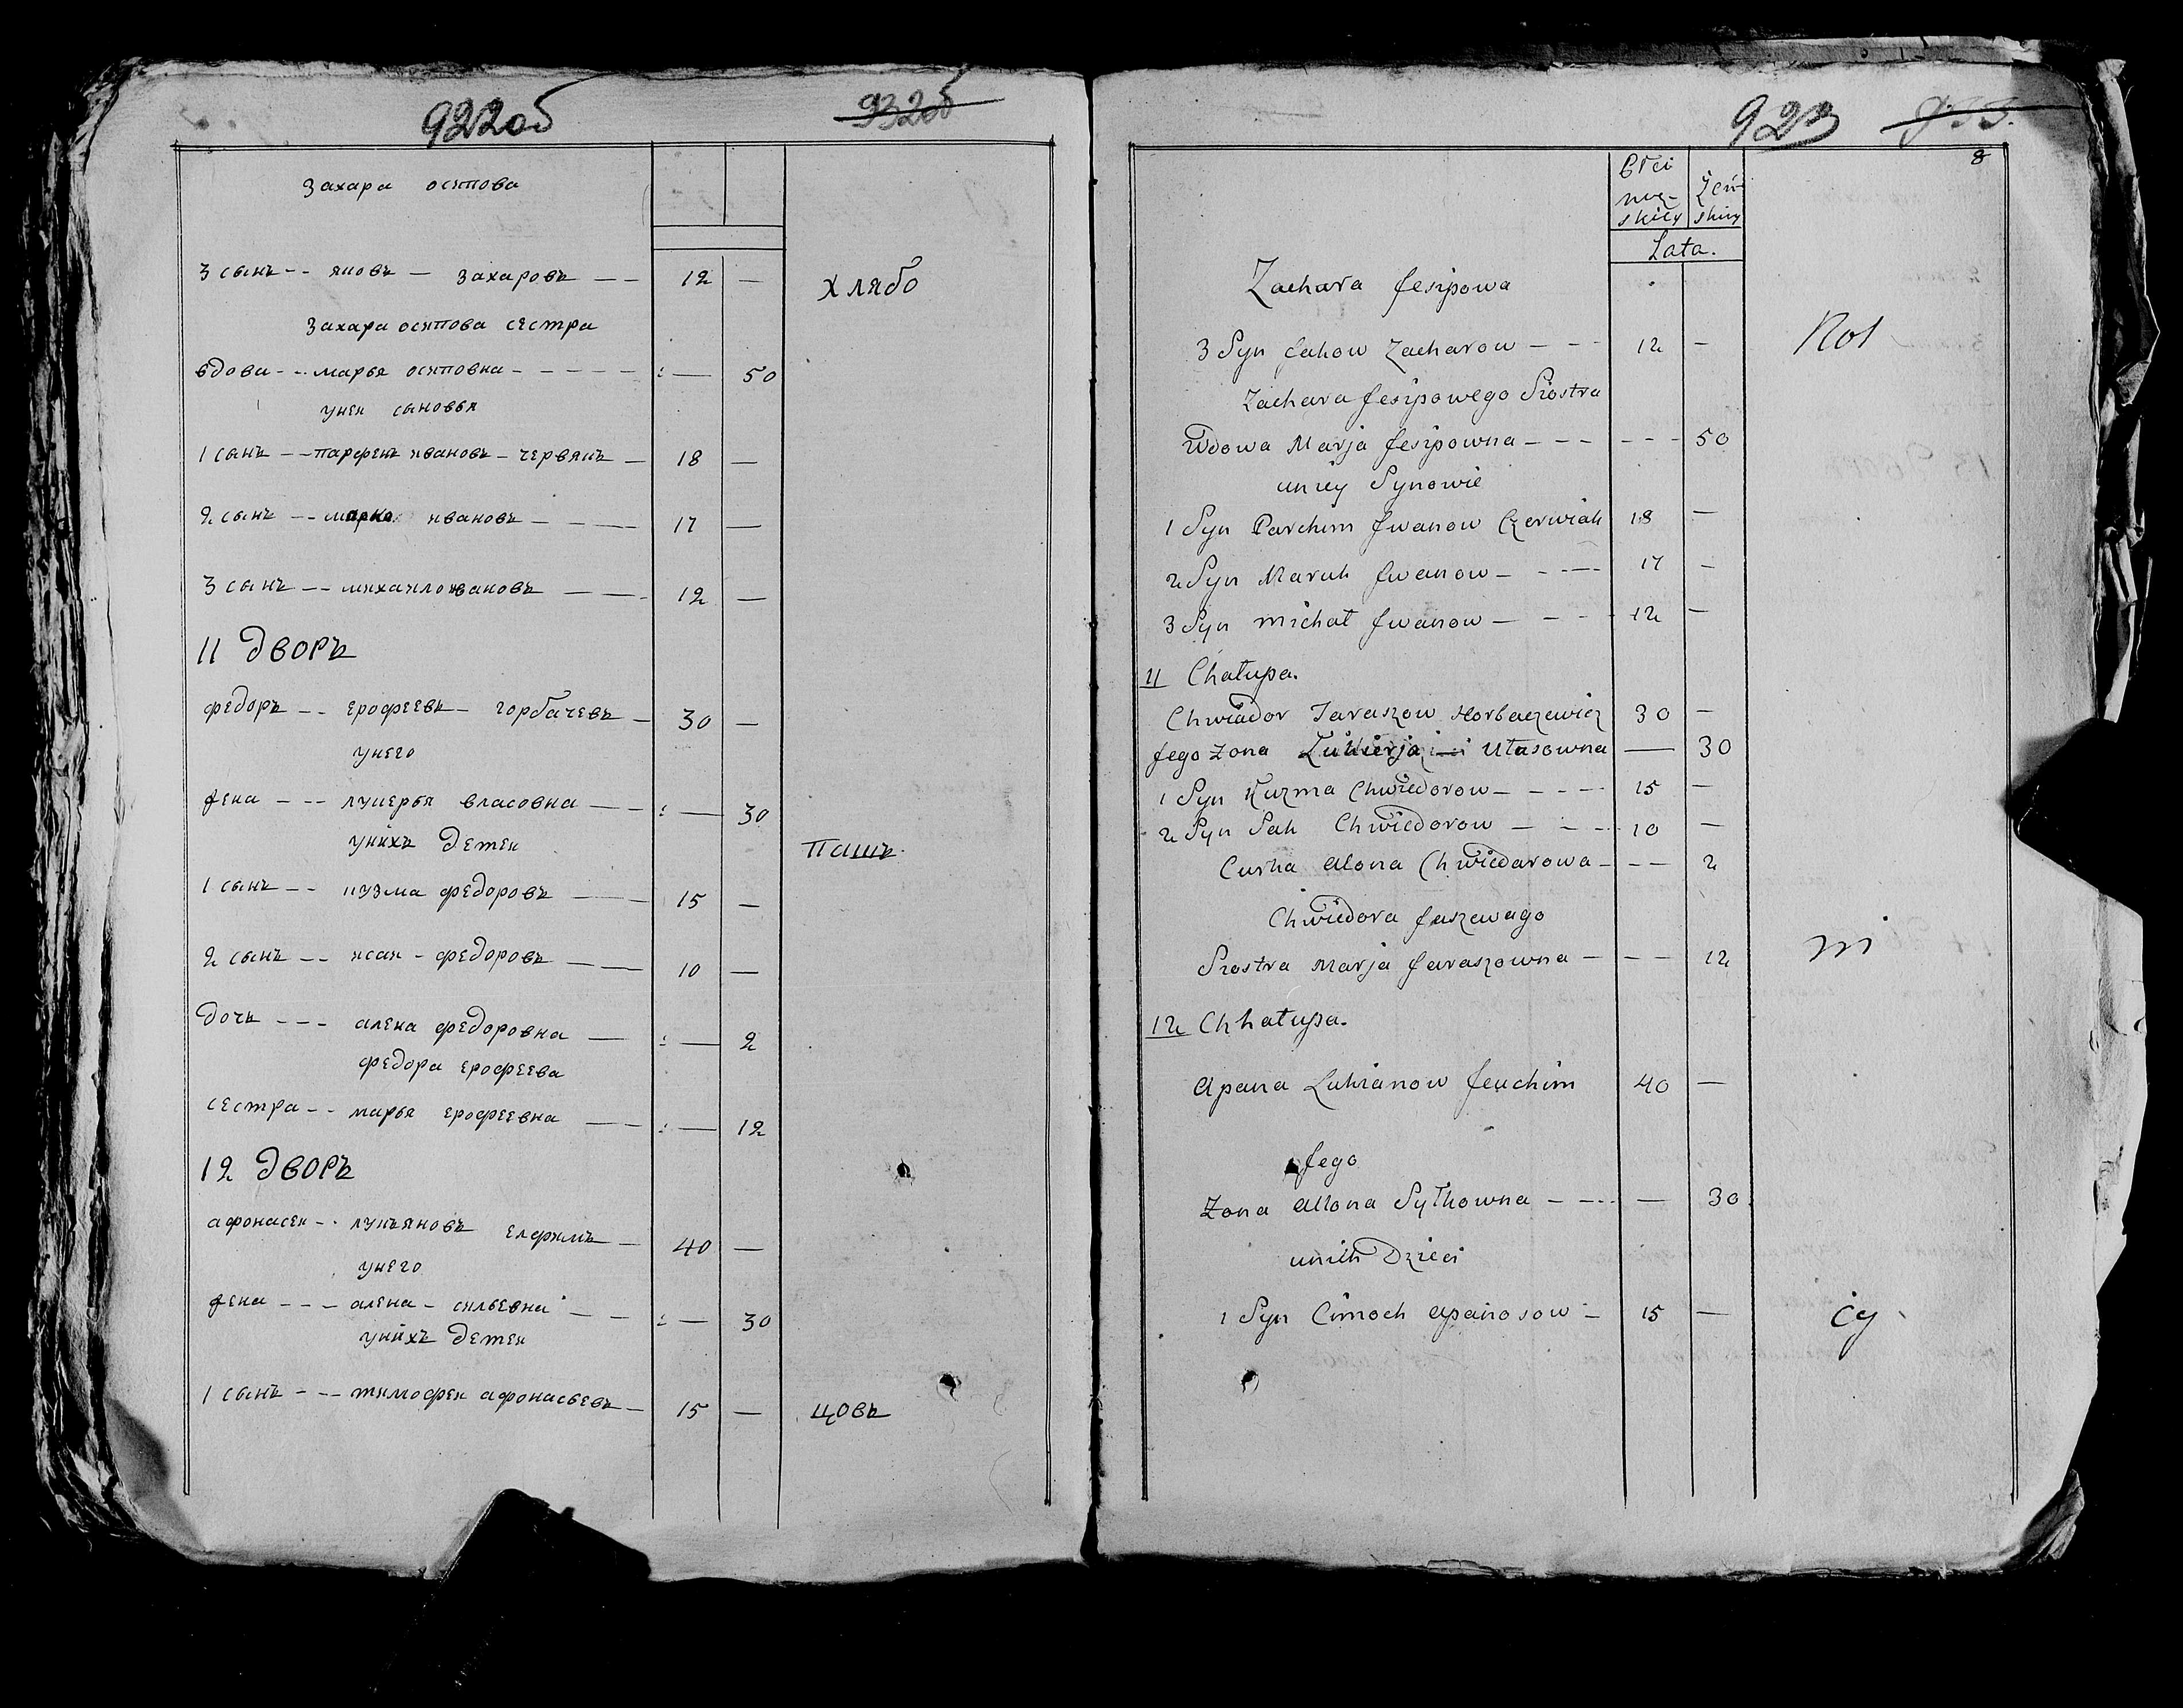 922об 932об
захара осипова
3 сынъ -- яковъ - захаровъ -- 12 - хлябо
захара осипова сестра
вдова -- марья осиповна ----- : - 50
унея сыновья
1 сынъ -- парфенъ ивановъ - червякъ - 18 -
2 сынъ -- марко ивановъ - 17 -
3 сынъ -- михаило ивановъ - 12 -
11 дворъ
федоръ -- ерофеевъ - горбачевъ - 30 -
унего
жена --- лукерья власовна -- : - 30
унихъ детеи
пашъ
1 сынъ -- кузма федоровъ - 15 -
2 сынъ -- исаи - федоровъ - 10 -
дочь --- алена федоровна - : - 2
федора ерофеева
сестра -- марья ерофеевна - : - 12
12 дворъ
афонасеи -- лукьяновъ елфимъ - 40 -
унего
жена --- алена - сильевна -- : - 30
унихъ детеи
1 сынъ --- тимофеи афонасьевъ - 15 - цовъ
923
8
płci
męz- Żeń-
skiey skiey
Lata.
Zachara Jesipowa
3 Syn Jakow Zacharow --- 12 - Rot
Zachara Jesipowego Siostra
Wdowa Marja Jesipowna --- --- 50
uniey Synowie
1 Syn Parchim Jwanow Czerwiak 18 -
2 Syn Maruk Jwanow - --- 17 -
3 Syn michał Jwanow - --- 12 -
11 Chałupa.
Chwiador Jaraszow Horbaczewicz 30 -
Jego Zona Łukierja Ułasowna - 30
1 Syn Kuzma Chwiedorow - --- 15 -
2 Syn Sak Chwiedorow - --- 10 -
Curka Alona Chwiedarowa - -- 2
Chwiedora Jaszewago
Siostra Marja Jaraszowna - -- 12
ni
12 Chhałupa.
Apana Łukianow Jeuchim 40 -
Jego
Zona Allona Syłkowna --- - 30
unich Dzieci
1 Syn Cimoch Apanosow - 15 - cy